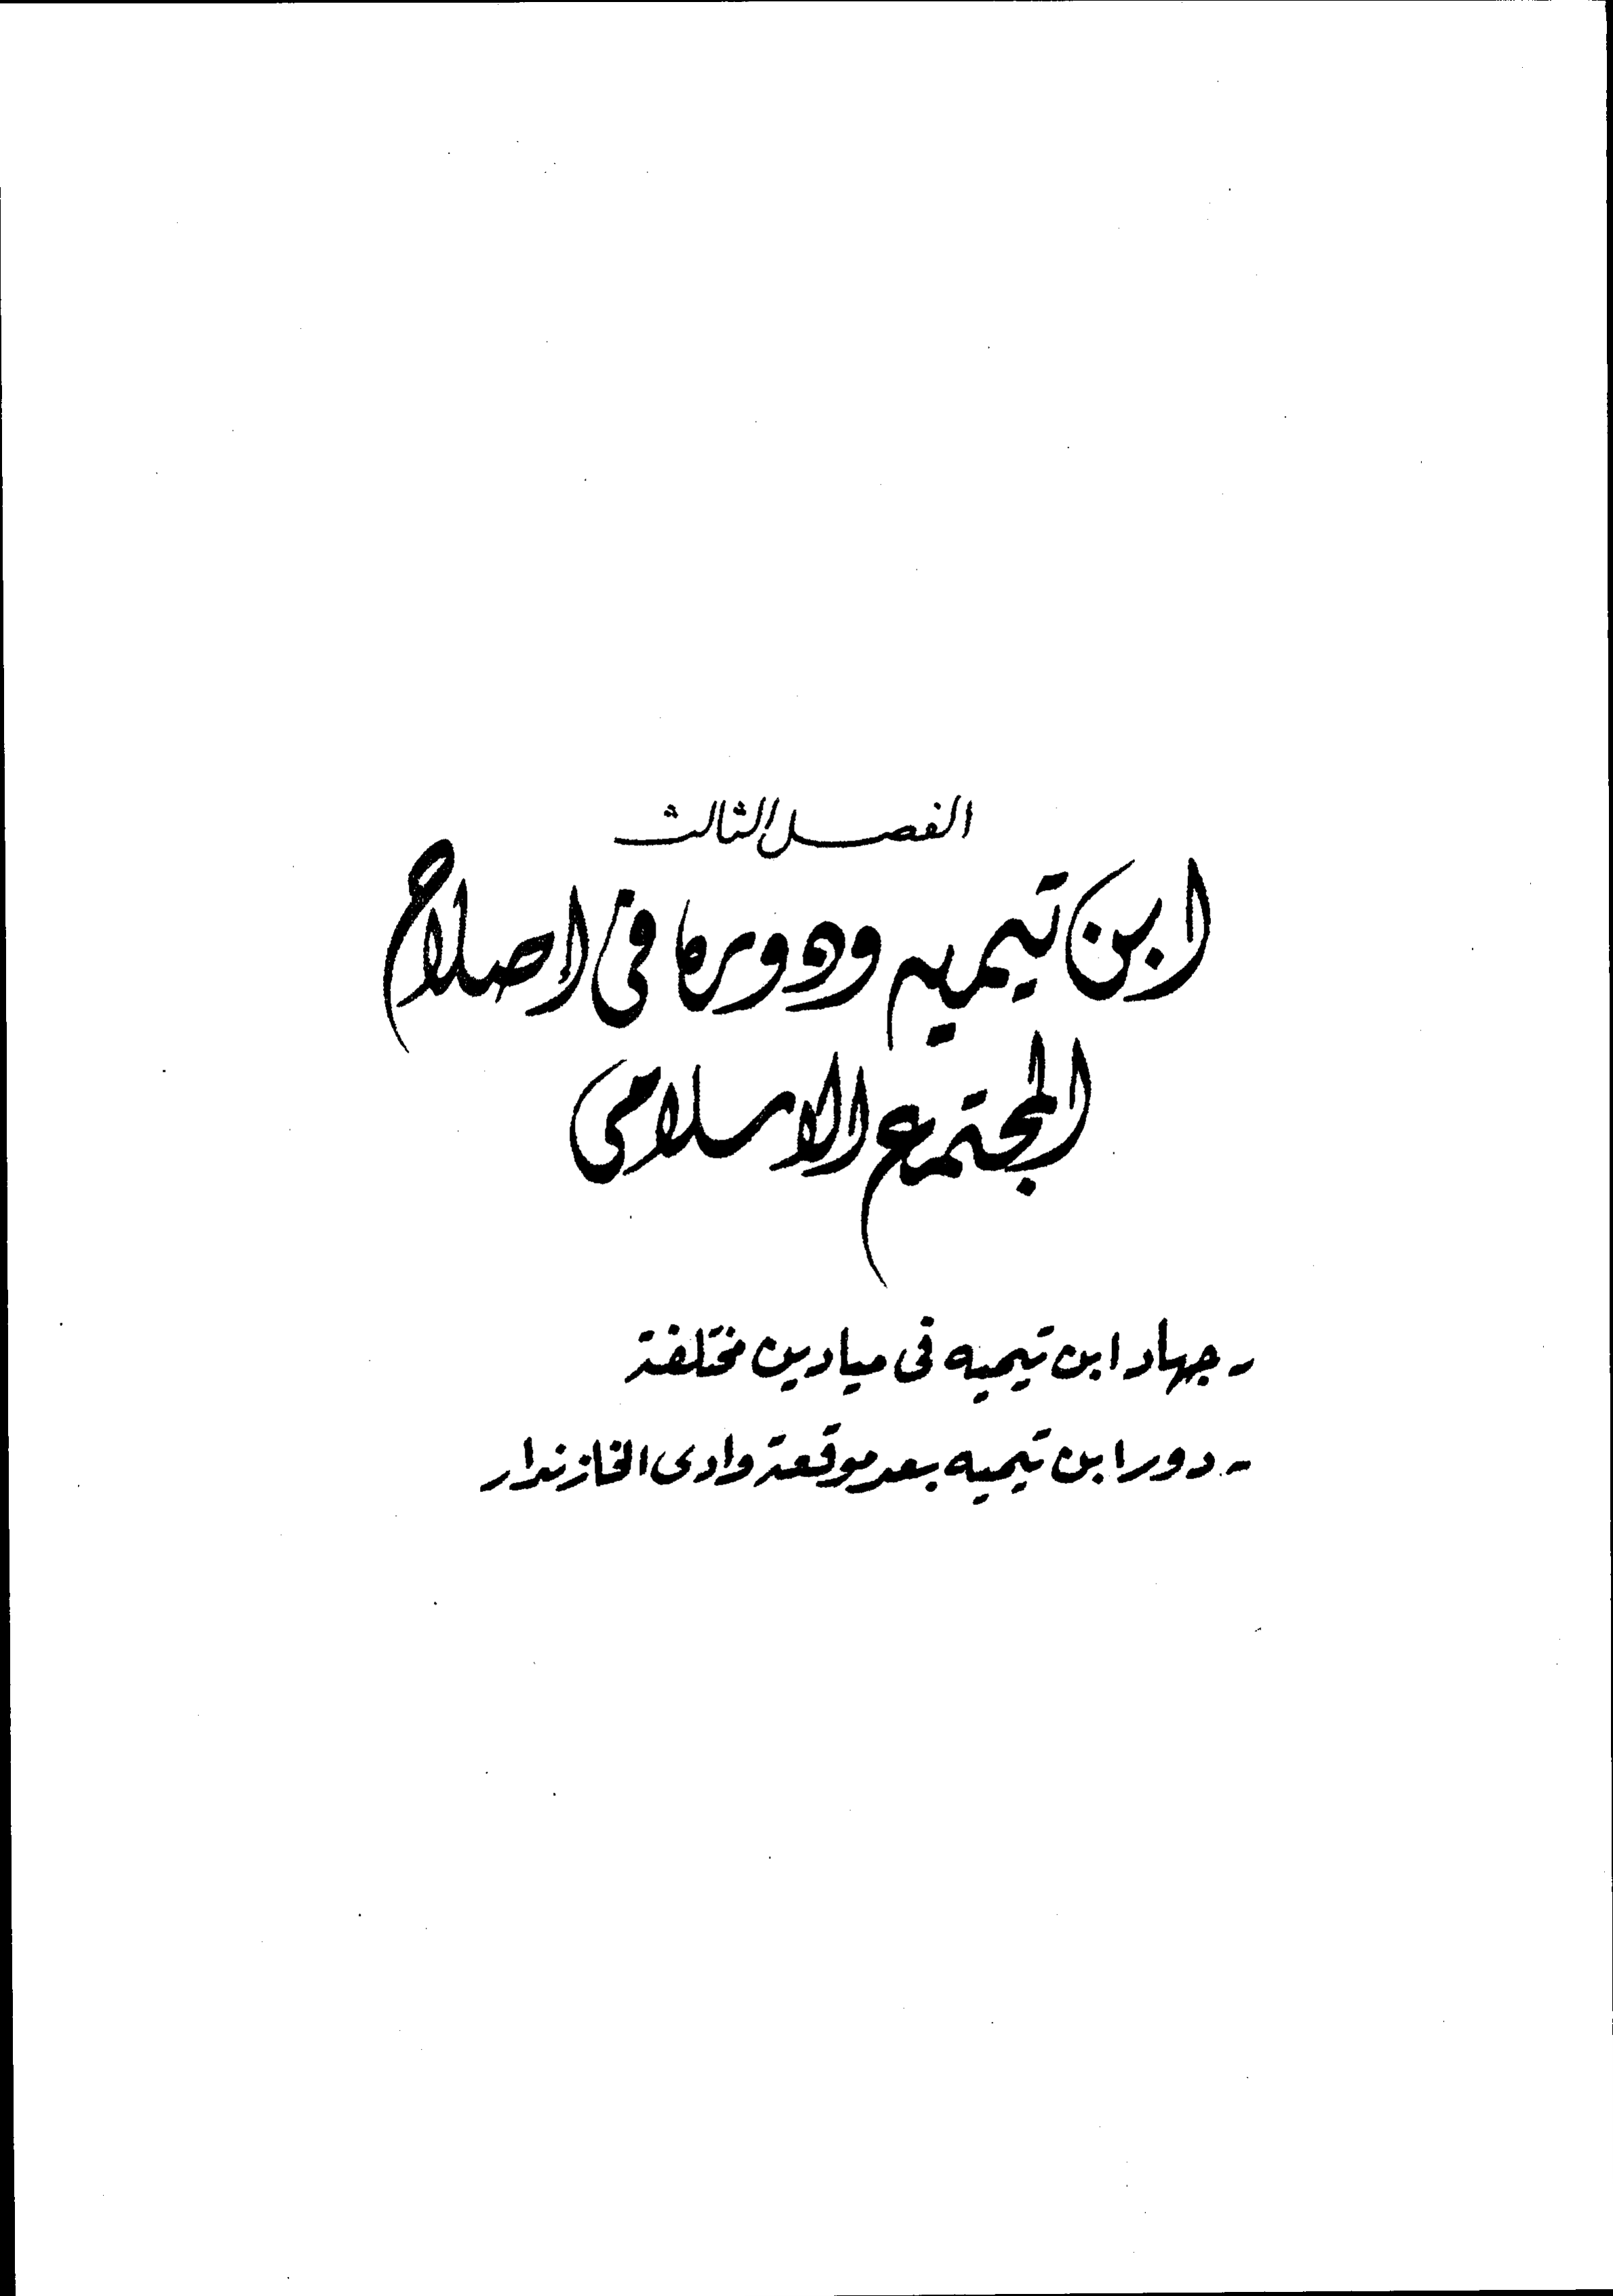 الفصل الثالث
ابن تيميه ودوره في إصلاح
المجتمع الاسلامى
- جهاد ابن تيميه فى ميادين مختلفة
- دور ابن تيميه بعد موقعة وادى الخازندار